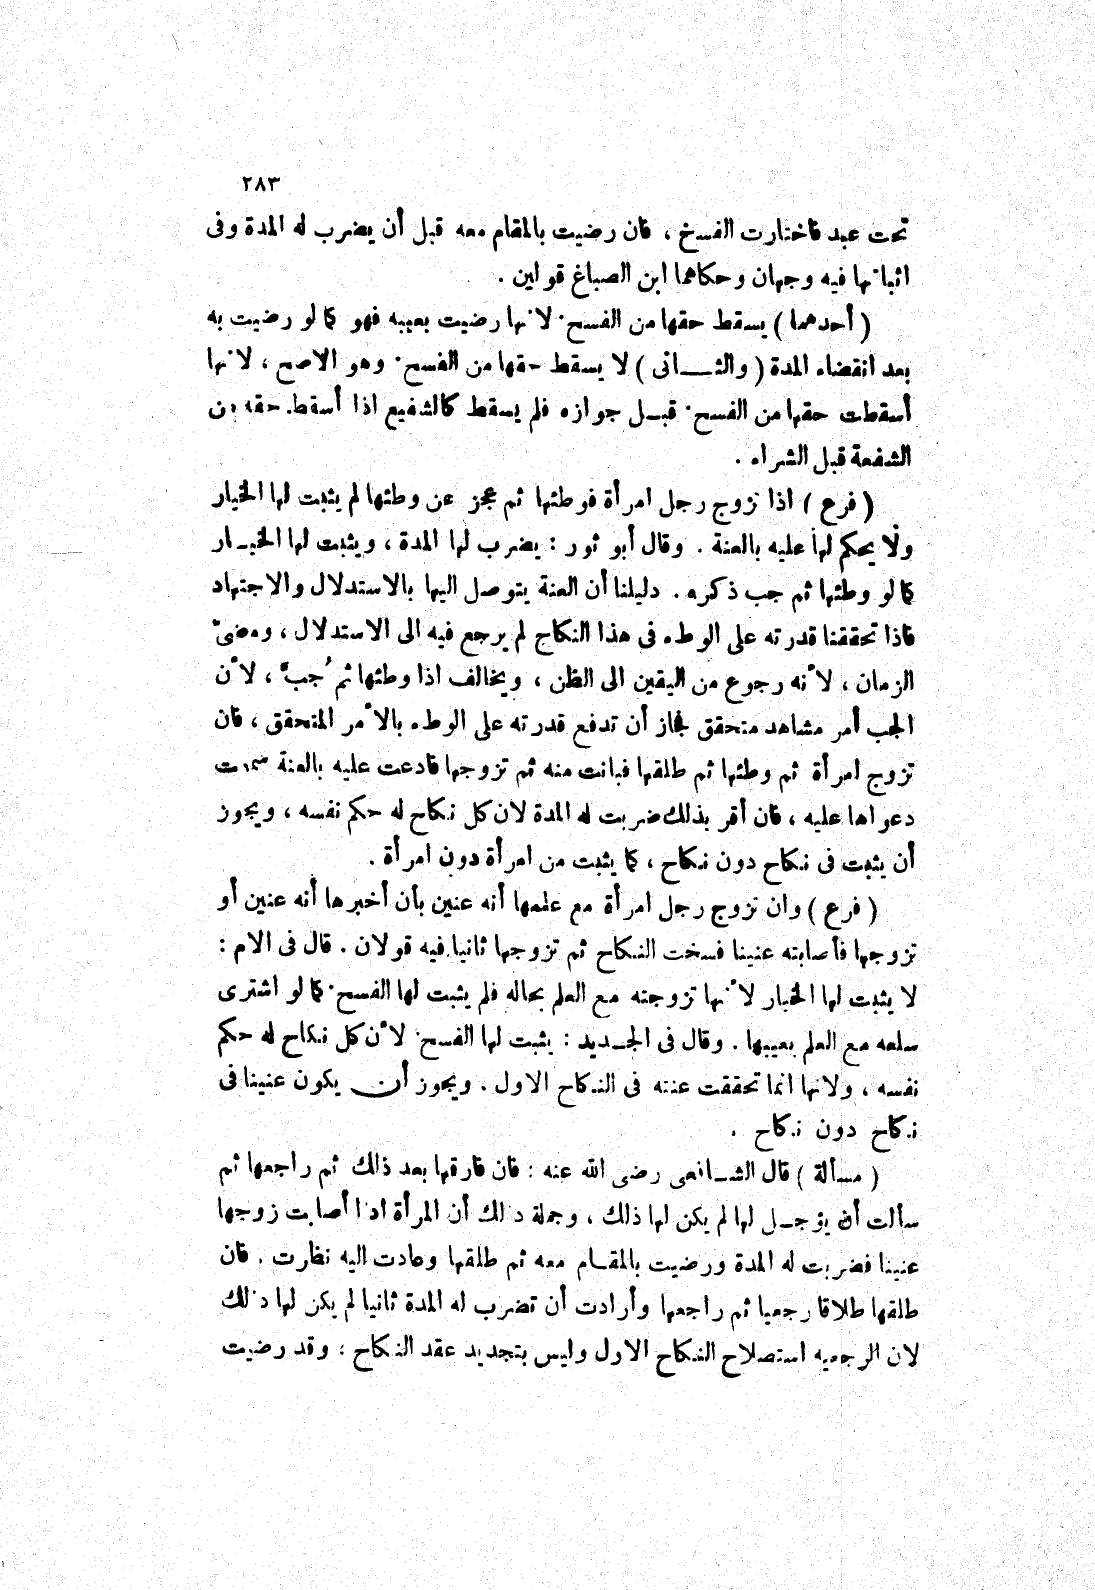 ٢٨٣
تحت عبد فاختارت الفسخ ، فان رضيت بالمقام معه قبل أن يضرب له المدة وفى
اثباتها فيه وجهان وحكاهما ابن الصباغ قولين .
( أحدهما ) يسقط حقها من الفسح لانها رضيت بعيبه فهو كما لو رضيت به
بعد انقضاء المدة ( والثــانى ) لا يسقط حقها من الفسح وهو الاصح ، لانها
أسقطت حقها من الفسح قبـل جوازه فلم يسقط كالشفيع اذا أسقط حقه من
الشفعة قبل الشراء .
( فرع ) اذا تزوج رجل امرأة فوطئها ثم عجز عن وطئها لم يثبت لها الخيار
ولا يحكم لها عليه بالعنة . وقال أبو ثور : يضرب لها المدة ، ويثبت لها الخيـار
كما لو وطئها ثم جب ذكره . دليلنا أن العنة يتوصل اليها بالاستدلال والاجتهاد
فاذا تحققنا قدرته على الوطء فى هذا النكاح لم يرجع فيه الى الاستدلال ، ومضىّ
الزمان ، لأنه رجوع من اليقين الى الظن ، ويخالف اذا وطئها ثم جُبَّ ، لأن
الجب أمر مشاهد متحقق فجاز أن تدفع قدرته على الوطء بالأمر المتحقق ، فان
تزوج امرأة ثم وطئها ثم طلقها فبانت منه ثم تزوجها فادعت عليه بالعنة سمعت
دعواها عليه ، فان أقر بذلك ضربت له المدة لان كل نكاح له حكم نفسه ، ويجوز
أن يثبت فى نكاح دون نكاح ، كما يثبت من امرأة دون امرأة .
( فرع ) وان تزوج رجل امرأة مع علمها أنه عنين بأن أخبرها أنه عنين أو
تزوجها فأصابته عنينا فسخت النكاح ثم تزوجها ثانيا فيه قولان . قال فى الام :
لا يثبت لها الخيار لأنها تزوجته مع العلم بحاله فلم يثبت لها الفسح كما لو اشترى
سلعه مع العلم بعيبها . وقال فى الجـديد : يثبت لها الفسح لأن كل نكاح له حكم
نفسه ، ولانها انما تحققت عنته فى النكاح الاول . ويجوز أن يكون عنينا فى
نكاح دون نكاح .
( مسألة ) قال الشـافعى رضى الله عنه : فان فارقها بعد ذلك ثم راجعها ثم
سألت أن يؤجـل لها لم يكن لها ذلك ، وجملة ذلك أن المرأة اذا أصابت زوجها
عنينا فضربت له المدة ورضيت بالمقـام معه ثم طلقها وعادت اليه نظرت . فان
طلقها طلاقا رجعيا ثم راجعها وأرادت أن تضرب له المدة ثانيا لم يكن لها ذلك
لان الرجعيه استصلاح النكاح الاول وليس بتجديد عقد النكاح : وقد رضيت